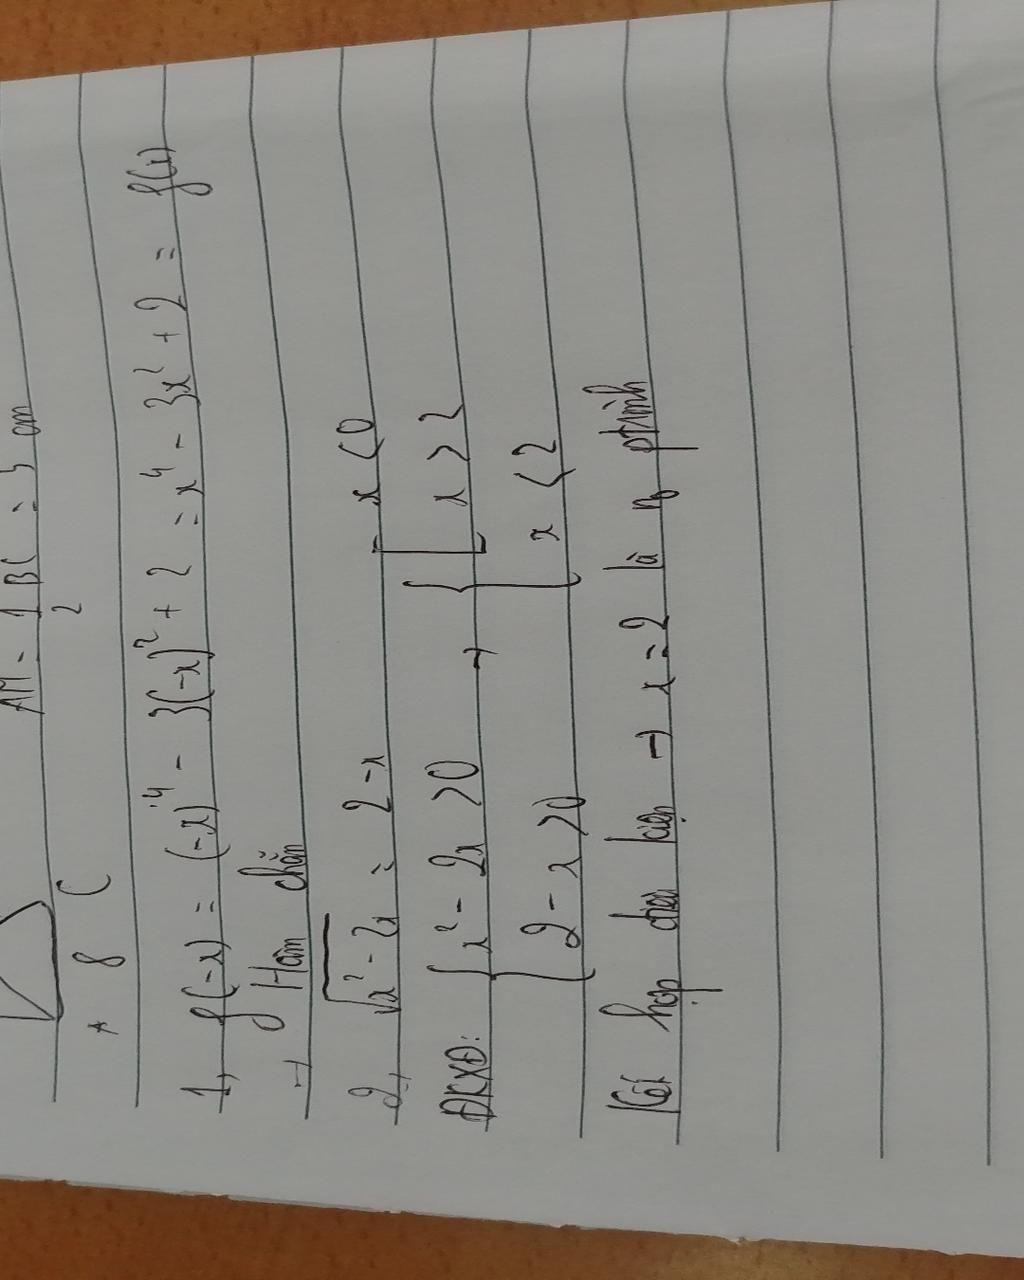 AM = 1/2 BC = 5 cm
A 8 C
1, f(-x) = (-x)^4 - 3(-x)^2 + 2 = x^4 - 3x^2 + 2 = f(x)
→ Hàm chẵn
2, √x^2 - 2x = 2 - x
ĐKXĐ: { x^2 - 2x > 0 → { [ x < 0
x > 2
2 - x > 0 x < 2
Kết hợp điều kiện → x = 2 là no ptrình